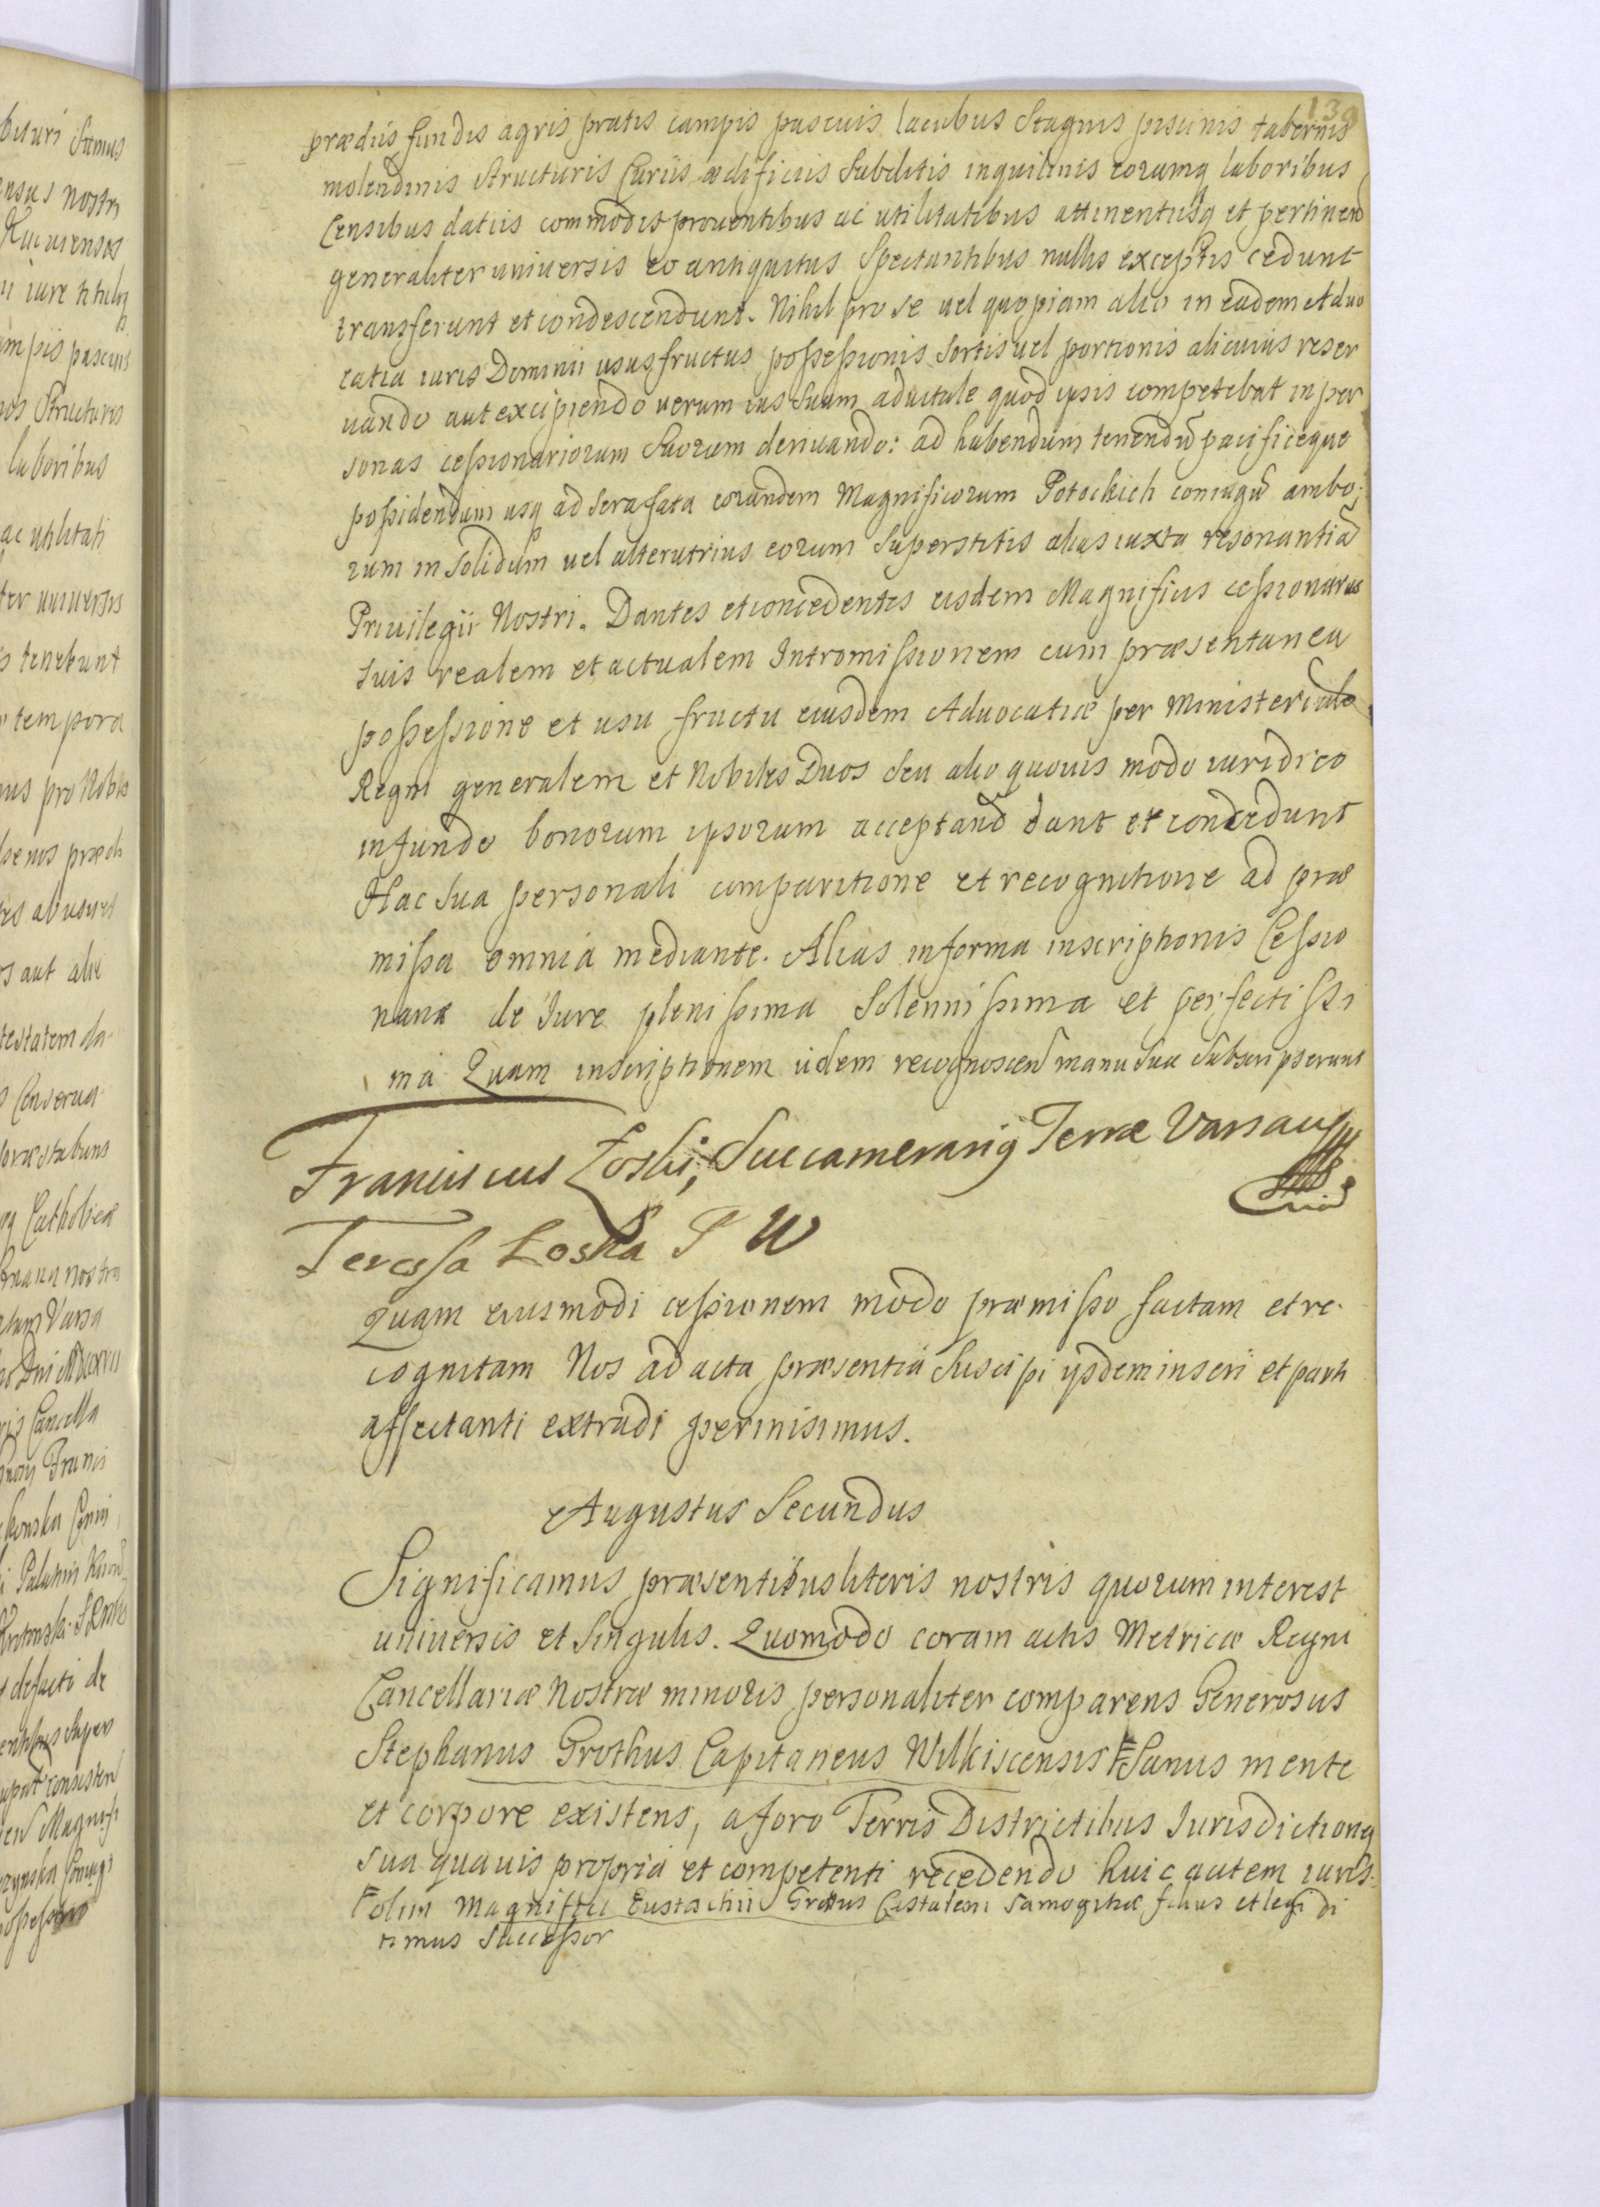 139
prædiis fundis agris pratis campis pascuis lacubus Stagnis piscinis tabernis
molendinis structuris Curiis ædificiis Subditis inquilinis eorumq laboribus
Censibus datiis commodis prouentibus ac utilitatibus attinentiisq et pertinend
generaliter uniuersis eo antiquitus Spectantibus nullis exceptis cedunt
transferunt et condescendunt. Nihil pro se uel quopiam alio in eadem Aduo
catia iuris Dominii ususfructus possessionis Sortis uel portionis alicuius reser
uando aut excipiendo uerum ius Suum aduitale quod ipsis competebat in per
sonas cessionariorum Suorum deriuando: ad habendum tenendū pacificeque
possidendum usq ad Sera fata eorundem Magnificorum Potockich coniugū ambo
rum in Solidum uel alterutrius eorum Superstitis alias iuxta resonantiā
Priuilegii Nostri. Dantes et concedentes eisdem Magnificis cessionariis
Suis realem et actualem Intromissionem cum præsentanea
possessione et usu fructu eiusdem Aduocatiæ per Ministerialē
Regni generalem et Nobiles Duos Seu alio quouis modo iuridico
in fundo bonorum ipsorum acceptand dant et concedunt
Hac Sua personali comparitione et recognitione ad præ
missa omnia mediante. Alias in forma inscriptionis Cessio
nariæ de Iure plenissima Solennissima et perfectissi
ma Quam inscriptionem iidem recognoscen manu Sua Subscripserunt
Franciscus Łoski, Succamerarig Terræ Varsau
Teressa Łoska P W
Quam eiusmodi cessionem modo præmisso factam et re-
cognitam Nos ad acta præsentia Suscipi ysdem inseri et parti
affectanti extradi permisimus.
Augustus Secundus
Significamus præsentibus literis nostris quorum interest
uniuersis et Singulis. Quomodo coram actis Metricæ Regni
Cancellariæ Nostræ minoris personaliter comparens Generosus
Stephanus Grothus Capitaneus Wilkiscensis Sanus mente
et corpore existens, a foro Terris Districtibus Iurisdictioneq
Sua quauis propria et competenti recedendo huic autem iuris-
olim Magnifici Eustachii Grotus Castalani Samogitiæ filius et legi di
timus Successor